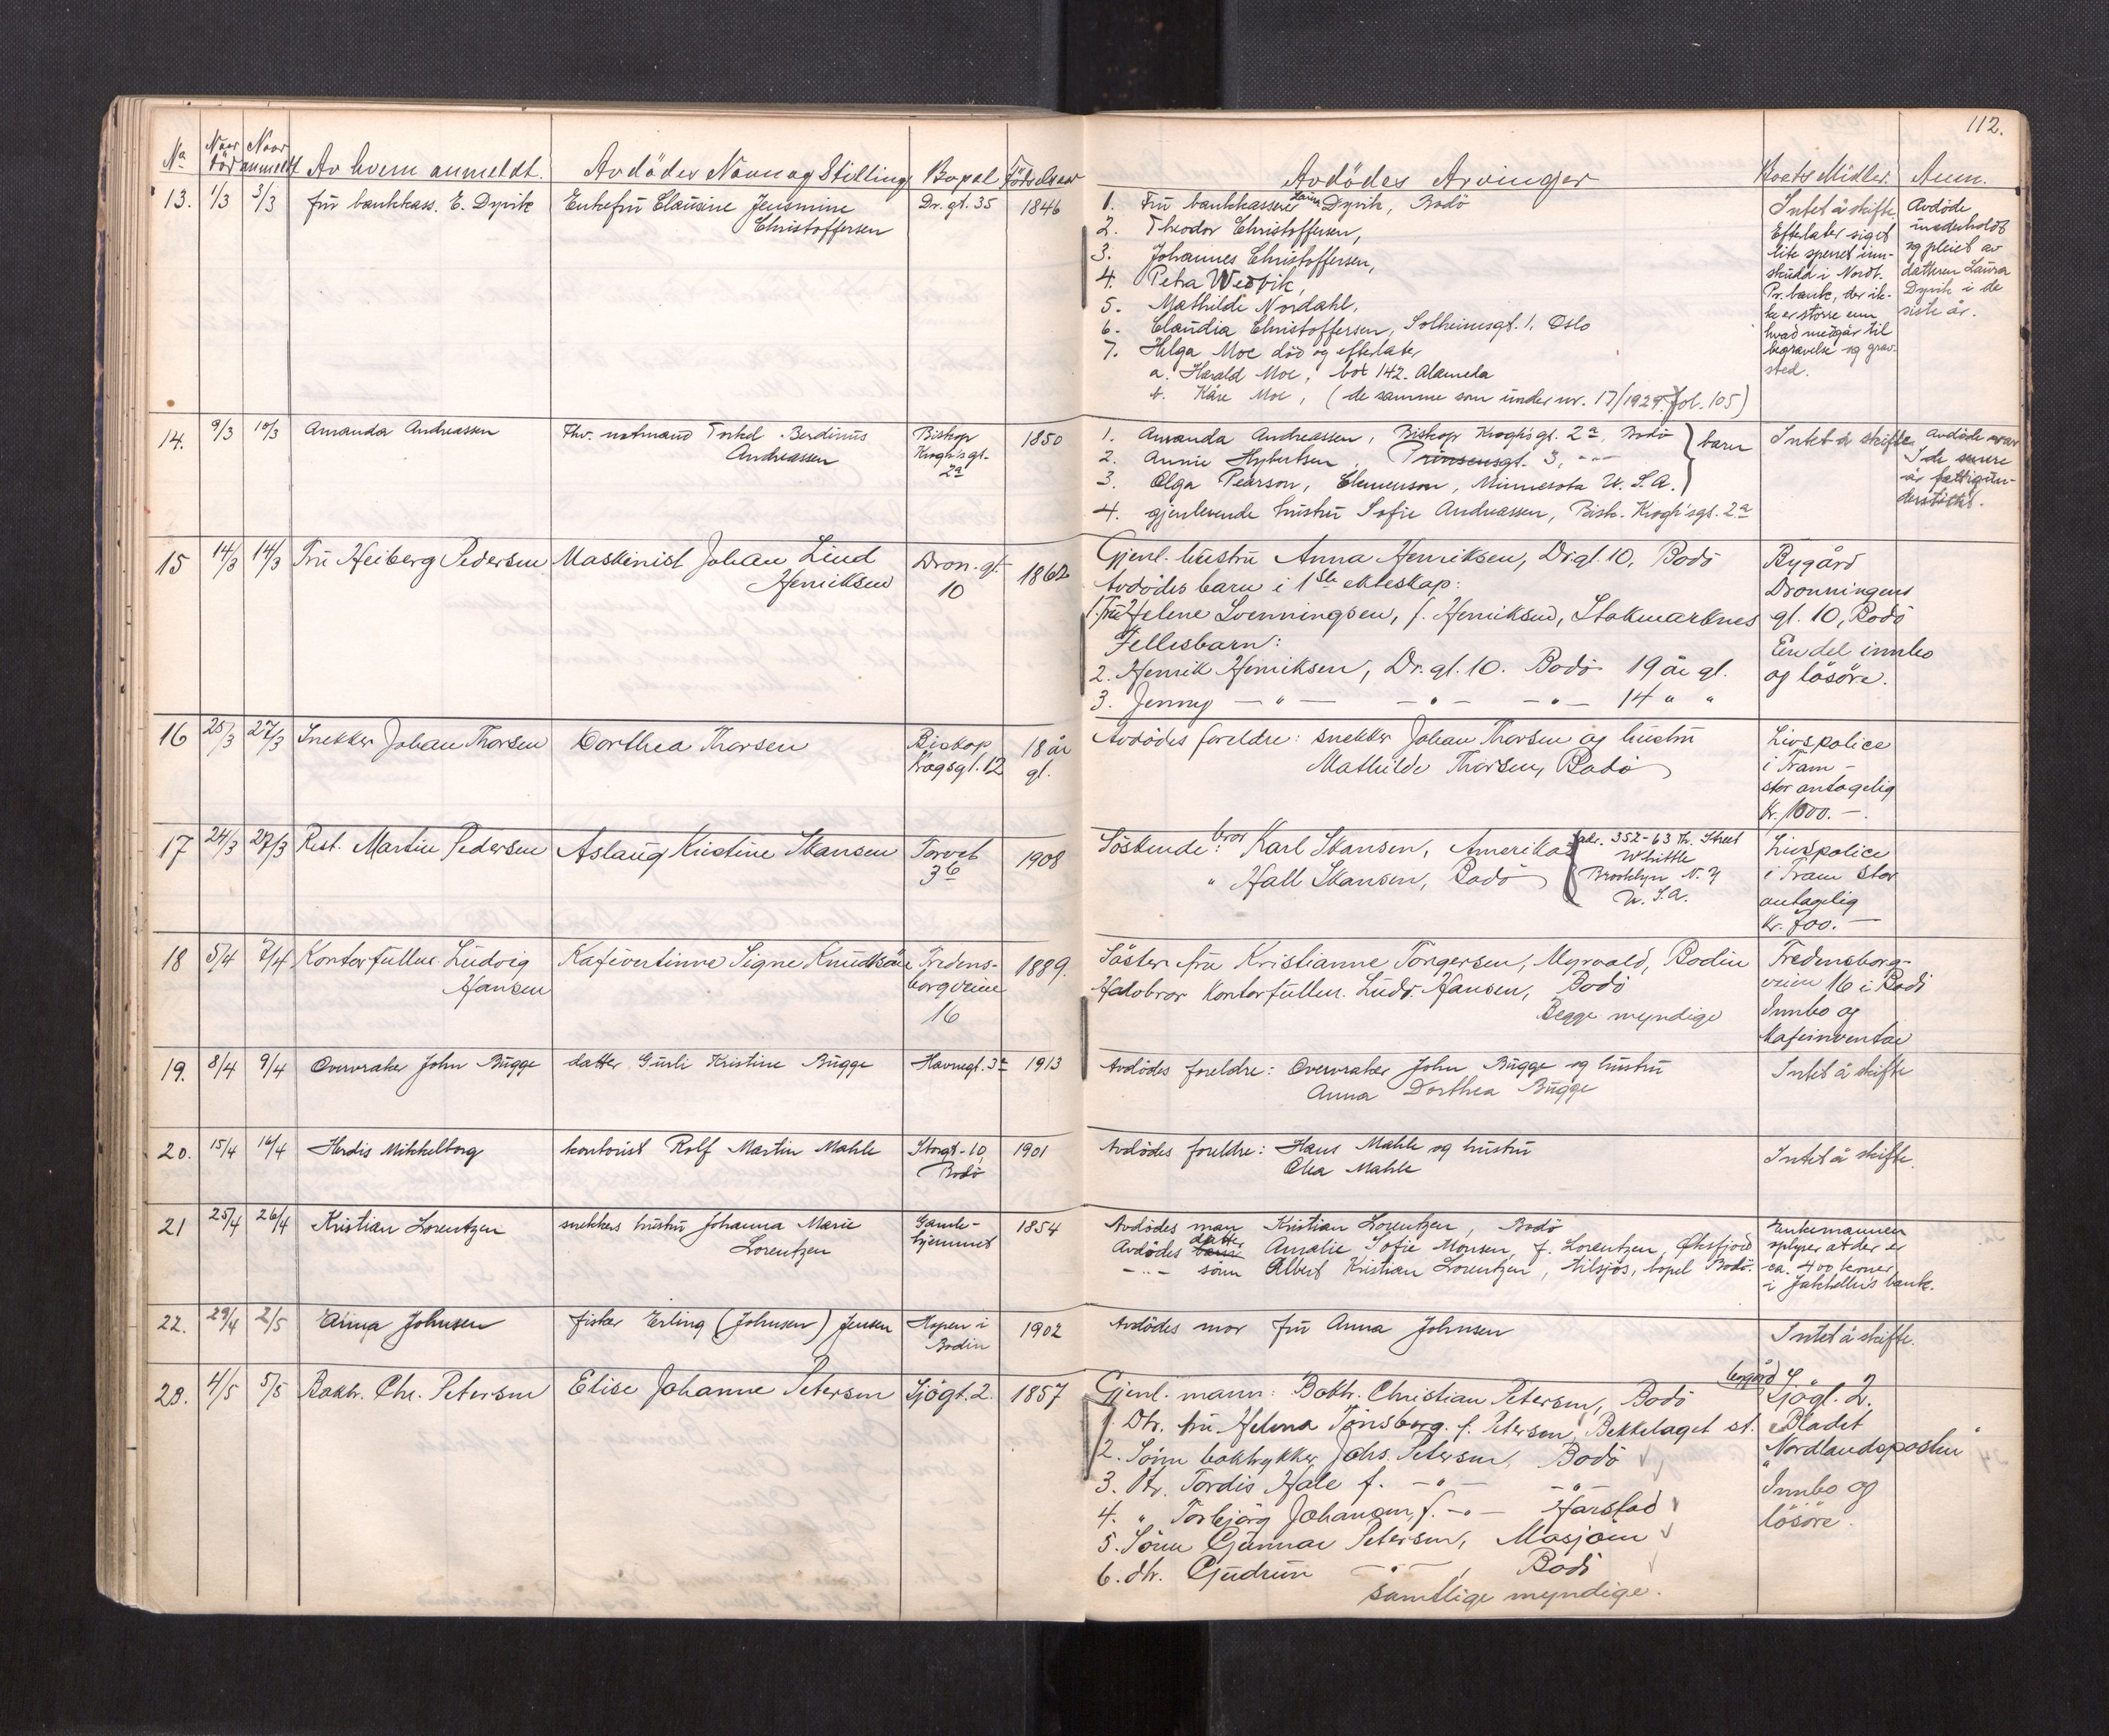 112.
No Naar död Naar anmeldt Av hvem anmeldt. Avdödes Navn og Stilling Bopæl Födselsaar Avdödes Arvinger Boets Midler Anm.
13. 1/3 3/3 fru bankkass. E. Dyvik Enkefru Clausine Jensmine Christoffersen Dr. gt. 35 1846
1. Fru bankkasserer Laura Dyvik, Bodö
2. Theodor Christoffersen,
3. Johannes Christoffersen,
4. Petra Wedvik,
5. Mathilde Nordahl,
6. Claudia Christoffersen, Solheimsgt. 1. Oslo
7. Helga Moe död og efterlater
a. Harald Moe, box 142. Alameda
b. Kåre Moe, (de samme som under nr. 17/1929. fol. 105)
Intet å skifte.
Efterlater siget
lite sperret inn-
skudd i Nordl.
Pr. bank, der ik-
ke er större enn
hvad medgår til
begravelse og grav-
sted.
Avdöde
underholdt
og pleiet av
datteren Laura
Dyvik i de
siste år.
14. 9/3 10/3 Amanda Andreassen Fhv. notmand Torkel Berdinus Andreassen Biskop Krogh's gt. 2a 1850
1. Amanda Andreassen, Biskop Krogh's gt. 2a, Bodö
2. Annie Hybertsen, Prinsensgt. 3, - " - } barn
3. Olga Pearson, Clemenson, Minnesota U. S. A.
4. gjenlevende hustru Sofie Andreassen, Bisk. Krogh'sgt. 2a
Intet å skifte
Avdöde var
i de senere
år fattigun-
derstöttet.
15 14/3 14/3 Fru Heiberg Pedersen Maskinist Johan Lind Henriksen Dron. gt. 10 1862
Gjenl. hustru Anna Henriksen, Dr.gt. 10, Bodö
Avdödes barn i 1ste ekteskap:
1. Fru Helene Svenningsen, f. Henriksen, Stokmarknes
Fellesbarn:
2. Henrik Henriksen, Dr. gt. 10. Bodö 19 år gl.
3. Jenny - " - - " - - " - 14 " "
Bygård
Dronningens
gt. 10, Bodö
En del innbo
og lösöre.
16 25/3 27/3 Snekker Johan Thorsen Dorthea Thorsen Biskop Krogsgt. 12 18 år gl.
Avdödes foreldre: snekker Johan Thorsen og hustru
Mathilde Thorsen, Bodö
Livspolice
i Fram -
stor antagelig
kr. 1000.-
17 24/3 27/3 Rest. Martin Pedersen Aslaug Kristine Skansen Torvet 3b 1908
Söskende: bror Karl Skansen, Amerika { adr. 352-63 Th. Street
Whittle
" Hall Skansen, Bodö Brooklyn N. Y
U. S. A.
Livspolice
i Fram stor
antagelig
kr. 700.-
18 5/4 7/4 Kontorfullm. Ludvig Hansen Kafévertinne Signe Knudsön Fredens-borgveien 16 1889.
Söster fru Kristianne Torgersen, Myrvold, Bodin
Halvbror kontorfullm. Ludv. Hansen, Bodö
Begge myndige
Fredensborg-
veien 16 i Bodö
Innbo og
kafeinventar
19. 8/4 9/4 Overvraker John Bugge datter Gurli Kristine Bugge Havnegt. 3a 1913
Avdödes foreldre: Overvraker John Bugge og hustru
Anna Dorthea Bugge
Intet å skifte
20. 15/4 16/4 Herdis Mikkelborg kontorist Rolf Martin Mahle Storgt-10, Bodö 1901
Avdödes foreldre: Hans Mahle og hustru
Olea Mahle
Intet å skifte.
21 25/4 26/4 Kristian Lorentzen snekkers hustru Johanna Marie Lorentzen Gamle-hjemmet 1854
Avdödes man Kristian Lorentzen, Bodö
Avdödes barn datter Amalie Sofie Monsen, f. Lorentzen, Öksfjord
- " - sönn Albert Kristian Lorentzen, tilsjös, bopel Bodö.
Enkemannen
oplyser at der er
ca. 400 kroner
i Jakhelln's bank.
22. 29/4 2/5 Anna Johnsen fisker Erling (Johnsen) Jensen Hopen i Bodin 1902
Avdödes mor fru Anna Johnsen
Intet å skifte.
23. 4/5 5/5 Boktr. Chr. Petersen Elise Johanne Petersen Sjögt. 2. 1857
Gjenl. mann: Boktr. Christian Petersen, Bodö
1. Dtr. fru Helena Tönsberg. f. Petersen, Bekkelaget st.
2. Sönn boktrykker Johs. Petersen, Bodö
3. Dtr. Tordis Hale f. - " - - " -
4. " Torbjörg Johansen, f. - " - Harstad
5. Sönn Gunnar Petersen, Mosjöen
6. dtr. Gudrun - " - , Bodö
samtlige myndige.
bygård Sjögt. 2.
Bladet
"Nordlandsposten"
Innbo og
lösöre.